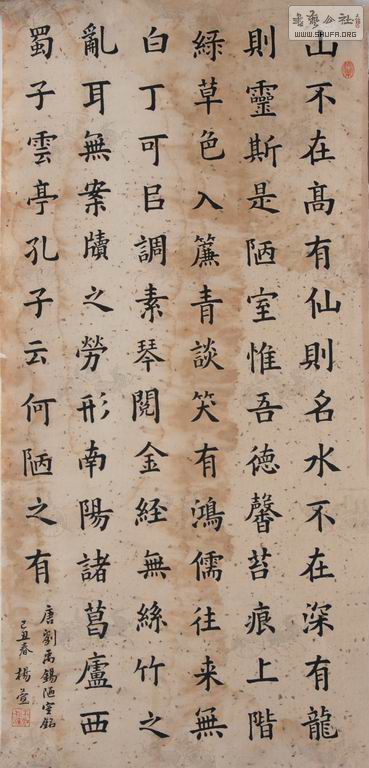 山不在髙有仙則名水不在深有龍
則靈斯是陋室惟吾德馨苔痕上階
綠草色入簾青談笑有鴻儒往來無
白丁可㠯調素琴閱金經無絲竹之
亂耳無案牘之勞形南陽諸葛廬西
蜀子雲亭孔子云何陋之有
唐劉禹錫陋室銘
己丑春 楊萱
書藝公社
WWW.SHUFA.ORG